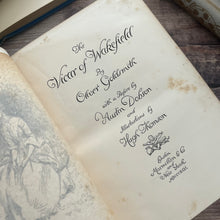 The
Vicar of Wakefield
By
Oliver Goldsmith
with a Preface by
Austin Dobson
and Illustrations by
Hugh Thomson
London
Macmillan & Co
and New York